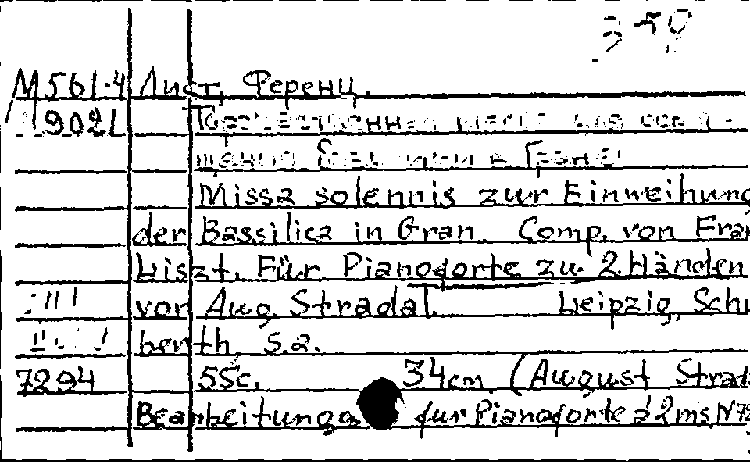 М561.4 Лист, Ференц.
9021 Торжественная месса для освя-
щения базилики в Гране
Missa solennis zur Einweihung
der Bassilica in Gran. Comp. von Fran
Liszt. Für Pianoforte zu 2 Händen
von Aug. Stradal. Leipzig, Schu
berth, s.a.
7294 55с. 34см (August Strad
Bearbeitungen für Pianoforte à 2ms, N